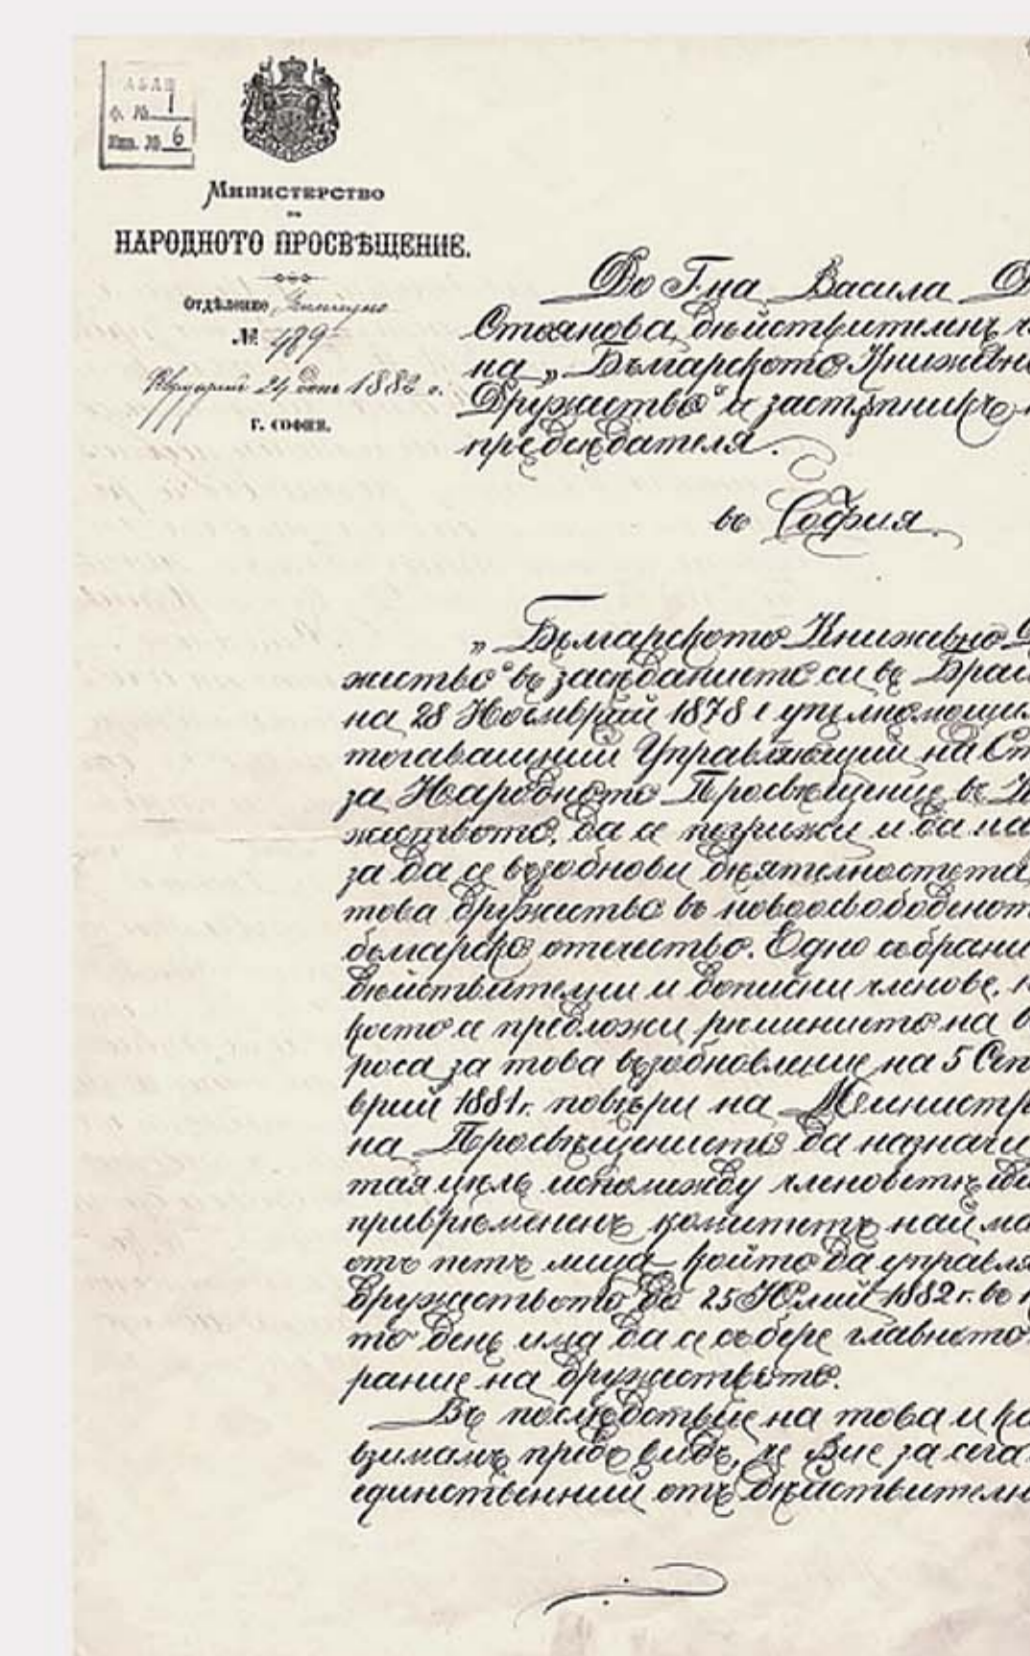 АБАН
ф. № 1
Инв. № 6
Министерство
на
НАРОДНОТО ПРОСВѢЩЕНИЕ.
Отдѣление
№ 489
24 день 1882 г.
Г. СОФИЯ.
До Г-на Васила
Стоянова, дѣйствителенъ
на „Българското Книжевно
Дружиство“ и застѫпникъ
предсѣдателя.
въ София.
„Българското Книжевно
жиство“ въ засѣданието си въ
на 28 Ноемврий 1878 г упълномощи
тогавашний Управляющий на
за Народното Просвѣщение въ
жиството, да се погрижи и да
за да се възобнови дѣятелностьта
това дружиство въ новоосвободенот
българско отечество. Едно събрание
дѣйствителни и дописни членове,
което се предложи решението на в
роса за това възобновление на 5 Сеп
врий 1881 г. повѣри на Министр
на Просвѣщението да назначи
тая цѣль испомежду членоветѣ
привременен комитетъ най ма
отъ петь лица който да управля
дружиството до 25 Юлий 1882 г. въ
то день има да се събере главното
рание на дружиството.
Въ послѣдствие на това и
взимамъ предъ видъ, че Вие за сега
единственний отъ дѣйствителн